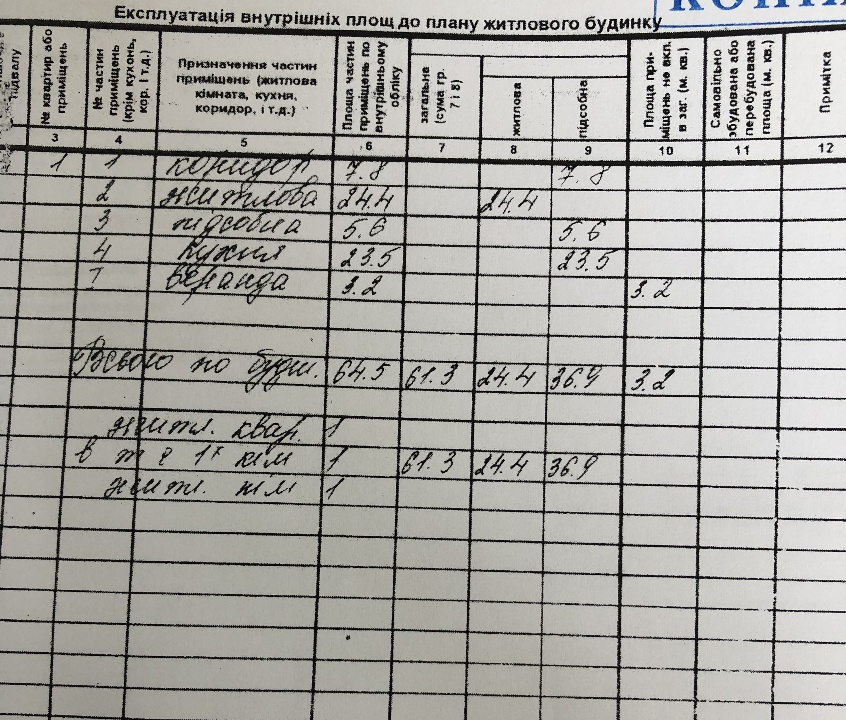 Експлуатація внутрішніх площ до плану житлового будинку
підвалу
№ квартир або приміщень
№ частин приміщень (крім кухонь, кор. і т.д.)
Призначення частин приміщень (житлова кімната, кухня, коридор. і т.д.)
Площа частин приміщень по внутрішньому обліку
загальна (сума гр. 7 і 8)
житлова
підсобна
Площа приміщень не вкл. в заг. (м. кв.)
Самовільно збудована або перебудована площа (м. кв.)
Примітка
3 4 5 6 7 8 9 10 11 12
1 1 коридор 7.8 7.8
2 житлова 24.4 24.4
3 підсобна 5.6 5.6
4 кухня 23.5 23.5
веранда 3.2 3.2
Всього по буд. 64.5 61.3 24.4 36.9 3.2
житл. квар. 1
в т ч 1к кім 1 61.3 24.4 36.9
житл. кім 1